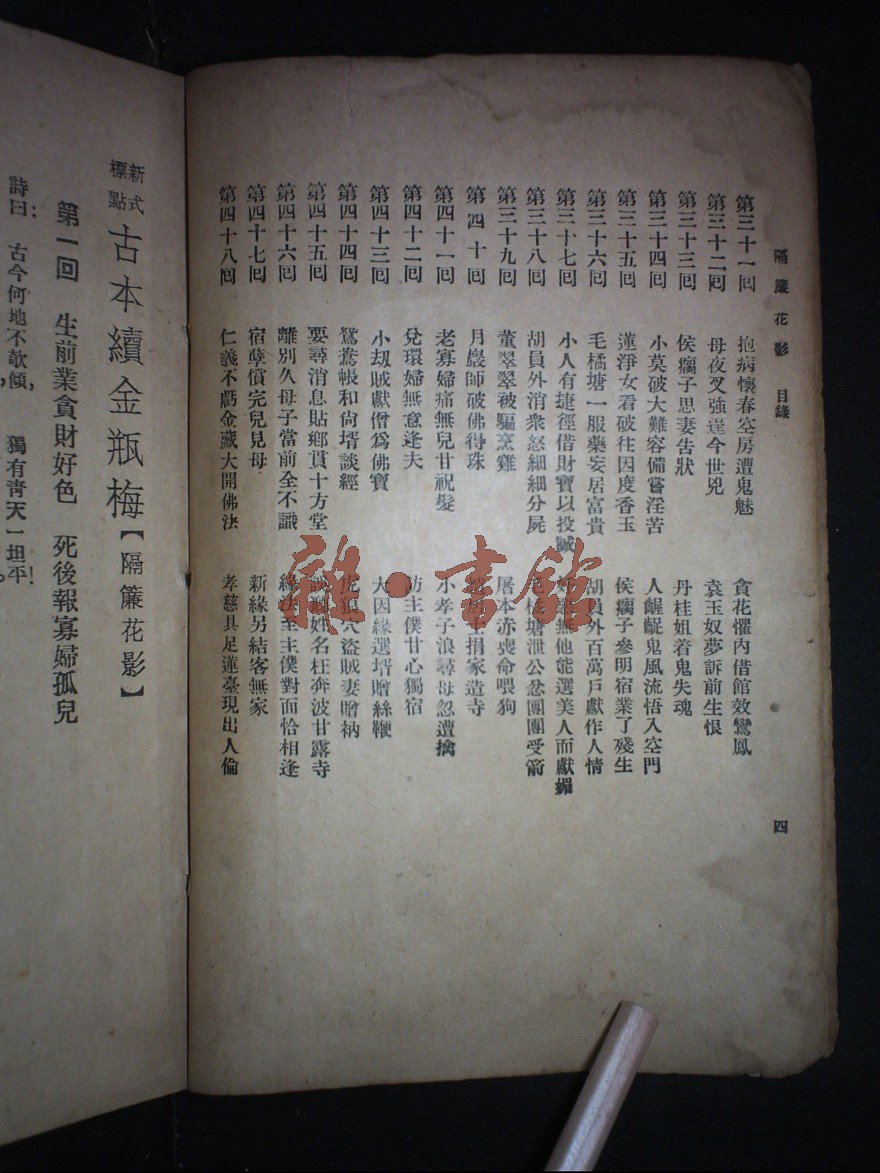 隔簾花影 目錄 四
第三十一回 抱病懷春空房遭鬼魅 貪花懼內借館效鸞鳳
第三十二回 母夜叉強逞今世兇 袁玉奴夢訴前生恨
第三十三回 侯瘸子思妻吿狀 丹桂姐着鬼失魂
第三十四回 小莫破大難容備嘗淫苦 人齷齪鬼風流悟入空門
第三十五回 蓮淨女看破往因度香玉 侯瘸子參明宿業了殘生
第三十六回 毛橘塘一服藥妄居富貴 胡員外百萬戶獻作人情
第三十七回 小人有捷徑借財寶以投誠 無他能選美人而獻媚
第三十八回 胡員外消衆怒細細分屍 毛橘塘泄公忿團團受箭
第三十九回 董翠翠被騙烹雞 屠本赤喪命喂狗
第四十回 月巖師破佛得珠 王捐家造寺
第四十一回 老寡婦痛無兒甘祝髮 小孝子浪尋母忽遭擒
第四十二回 兌環婦無意逢夫 訪主僕甘心獨宿
第四十三回 小刼賊獻僧爲佛寶 大因緣選壻贈絲鞭
第四十四回 鴛鴦帳和尙壻談經 虎狼穴盜賊妻贈衲
第四十五回 要尋消息貼鄉貫十方堂 姓名枉奔波甘露寺
第四十六回 離別久母子當前全不識 緣法至主僕對面恰相逢
第四十七回 宿孽償完兒見母 新緣另結客無家
第四十八回 仁義不虧金藏大開佛法 孝慈具足蓮臺現出人倫
龍・書館
新式標點 古本續金瓶梅【隔簾花影】
第一回 生前業貪財好色 死後報寡婦孤兒
詩曰： 古今何地不欹傾， 獨有靑天一坦平！